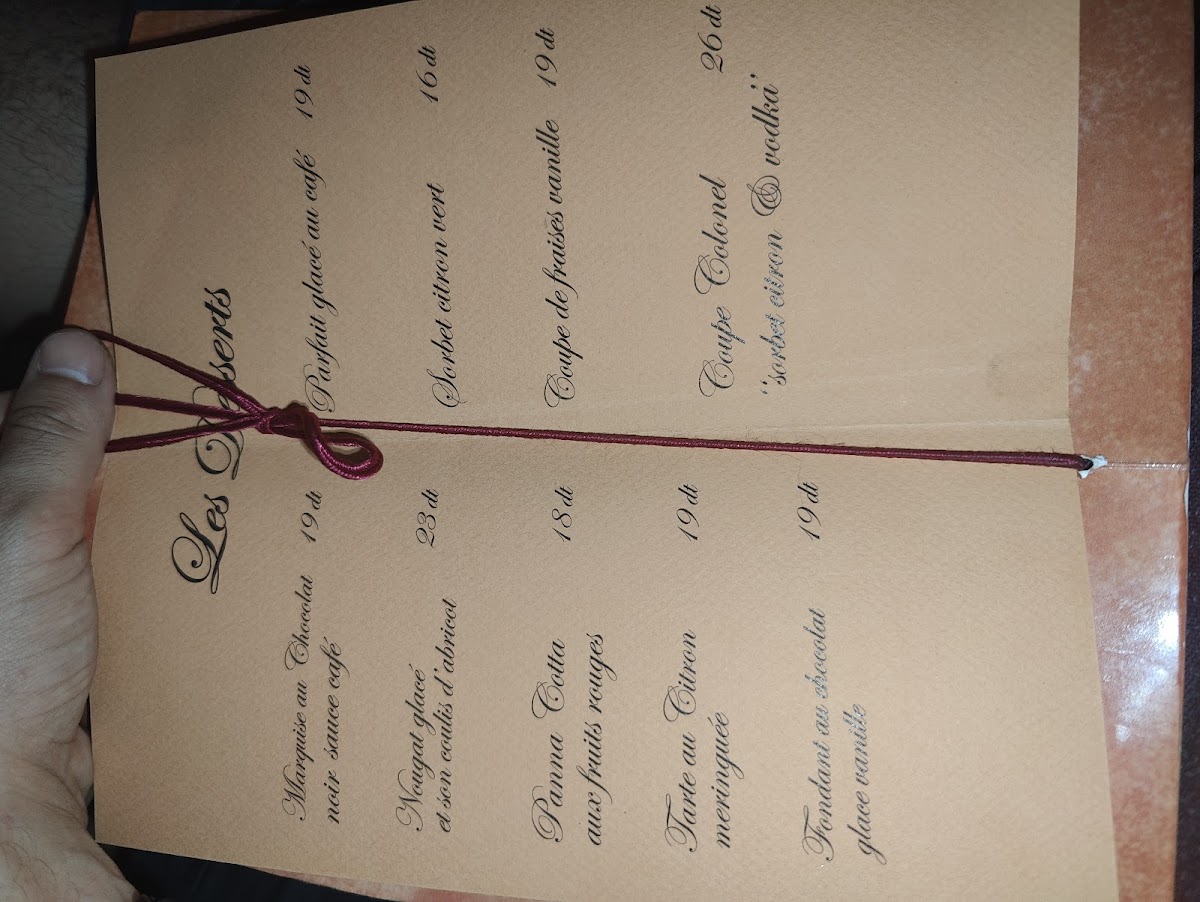 Les Desserts
Marquise au Chocolat 19 dt
noir sauce café
Nougat glacé 23 dt
et son coulis d'abricot
Panna Cotta 18 dt
aux fruits rouges
Tarte au Citron 19 dt
meringuée
Fondant au chocolat 19 dt
glace vanille
Parfait glacé au café 19 dt
Sorbet citron vert 16 dt
Coupe de fraises vanille 19 dt
Coupe Colonel 26 dt
"sorbet citron & vodka"